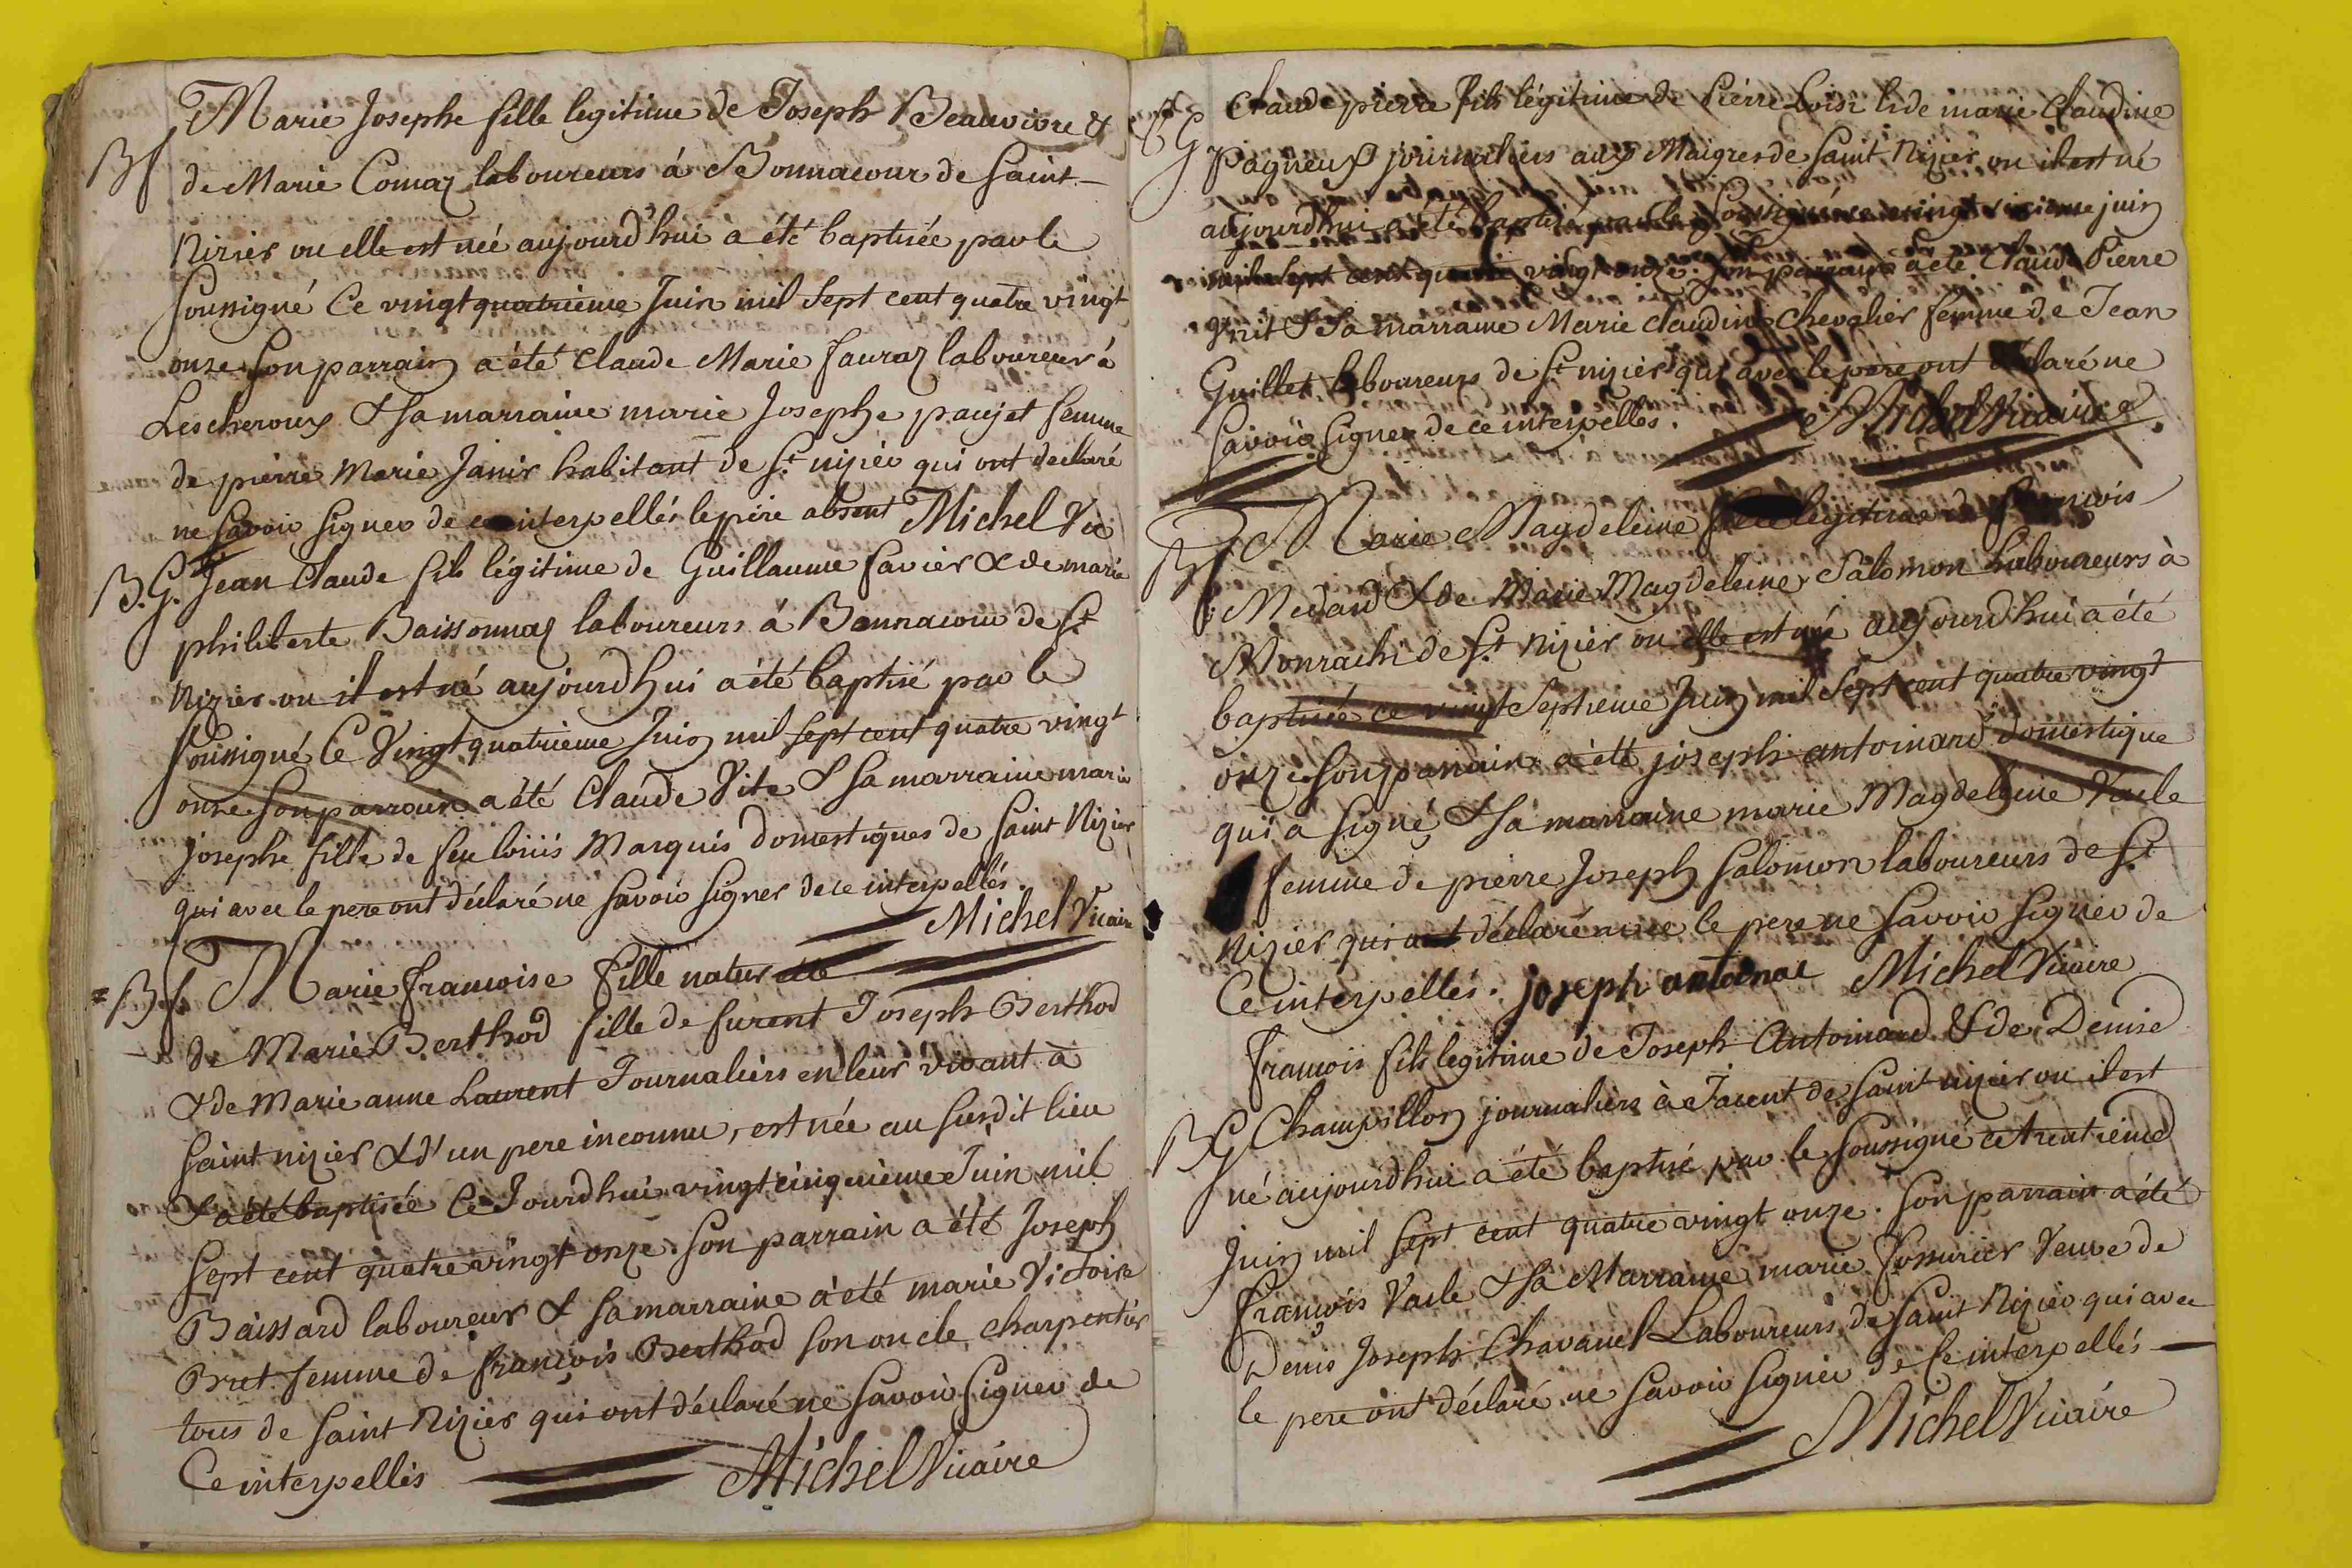 Marie Josephe fille legitime de Joseph Beauvivre &
Bf de Marie Comaz laboureurs á Bonnacour de Saint
Nizier ou elle est née aujourd'hui a été baptisée par le
soussigné Ce vingt quatrieme Juin mil Sept cent quatre vingt
onze son parrain a été Claude Marie Fauraz laboureur à
Lescheroux & sa marraine marie Josephe paujet femme
de pierre Marie Janir habitant de St nizier qui ont declaré
ne savoir signer de ce interpellés le père absent Michel Vic
B.G. Jean Claude fils légitime de Guillaume favier & de marie
philiberte Baissonnaz laboureurs á Bonnacour de St
Nizier ou il est né aujourdhui a été baptisé par le
soussigné Ce Vingt quatrieme Juin mil sept cent quatre vingt
onze son parrain a été Claude Vite & sa marraine marie
josephe fille de feu loüis Marquis domestiques de Saint Nizier
qui avec le pere ont déclaré ne savoir signer de ce interpellés.
Michel Vicaire
Bf. Marie françoise fille naturelle
de Marie Berthod fille de furent Joseph Berthod
& de Marie anne Laurent Journaliers en leur vivant à
Saint nizier & d'un pere inconnu, est née au susdit lieu
& a été baptisée Ce Jourdhui vingt cinquieme Juin mil
Sept cent quatre vingt onze. Son parrain a été Joseph
Baissard laboureur & sa marraine a été marie Victoire
Bret femme de françois Berthod son oncle charpentier
tous de Saint Nizier qui ont déclaré ne savoir signer de
Ce interpellés Michel Vicaire
BG Claude pierre fils légitime de Pierre Loisi & de marie Claudine
Pagneux journaliers aux Maigres de Saint Nizier ou il est né
aujourdhui a été baptisé par le soussigné ce vingt sixieme juin
mil sept cent quatre vingt onze. Son parrain a été Claude Pierre
& Sa marraine Marie Claudine Chevalier femme de Jean
Guillet laboureurs de St nizier qui avec le pere ont déclaré ne
savoir signer de ce interpellés. Michel Vicaire
Bf Marie Magdeleine fille légitime de François
Medard & de Marie Magdeleine Salomon Laboureurs à
Monrachi de St Nizier ou elle est née aujourdhui a été
baptisée ce vingt Septieme Juin mil Sept cent quatre vingt
onze son parrain a été joseph antoinard domestique
qui a signé & sa marraine marie Magdeleine Vaile
femme de pierre Joseph Salomon laboureurs de St
Nizier qui ont déclaré avec le pere ne savoir signer de
Ce interpellés. joseph antoinar Michel Vicaire
françois fils legitime de Joseph Antoinard & de Denise
BG Champillon journaliers à Jacent de Saint nizier ou il est
né aujourdhui a été baptisé par le soussigné ce trentieme
Juin mil sept cent quatre vingt onze. Son parrain a été
François Vaile & sa Marraine marie Veuve de
Denis Joseph Chavanel Laboureurs de Saint Nizier qui avec
le pere ont déclaré ne savoir signer de Ce interpellés
Michel Vicaire